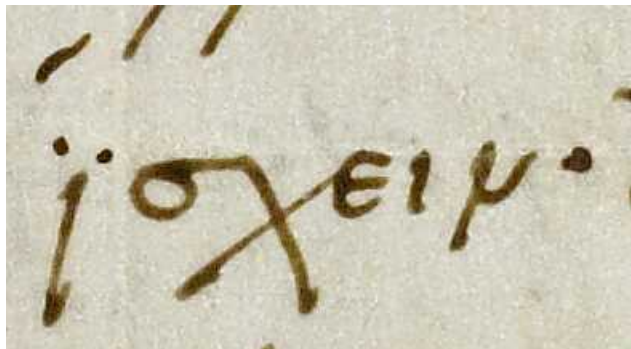 ϊσχειν·